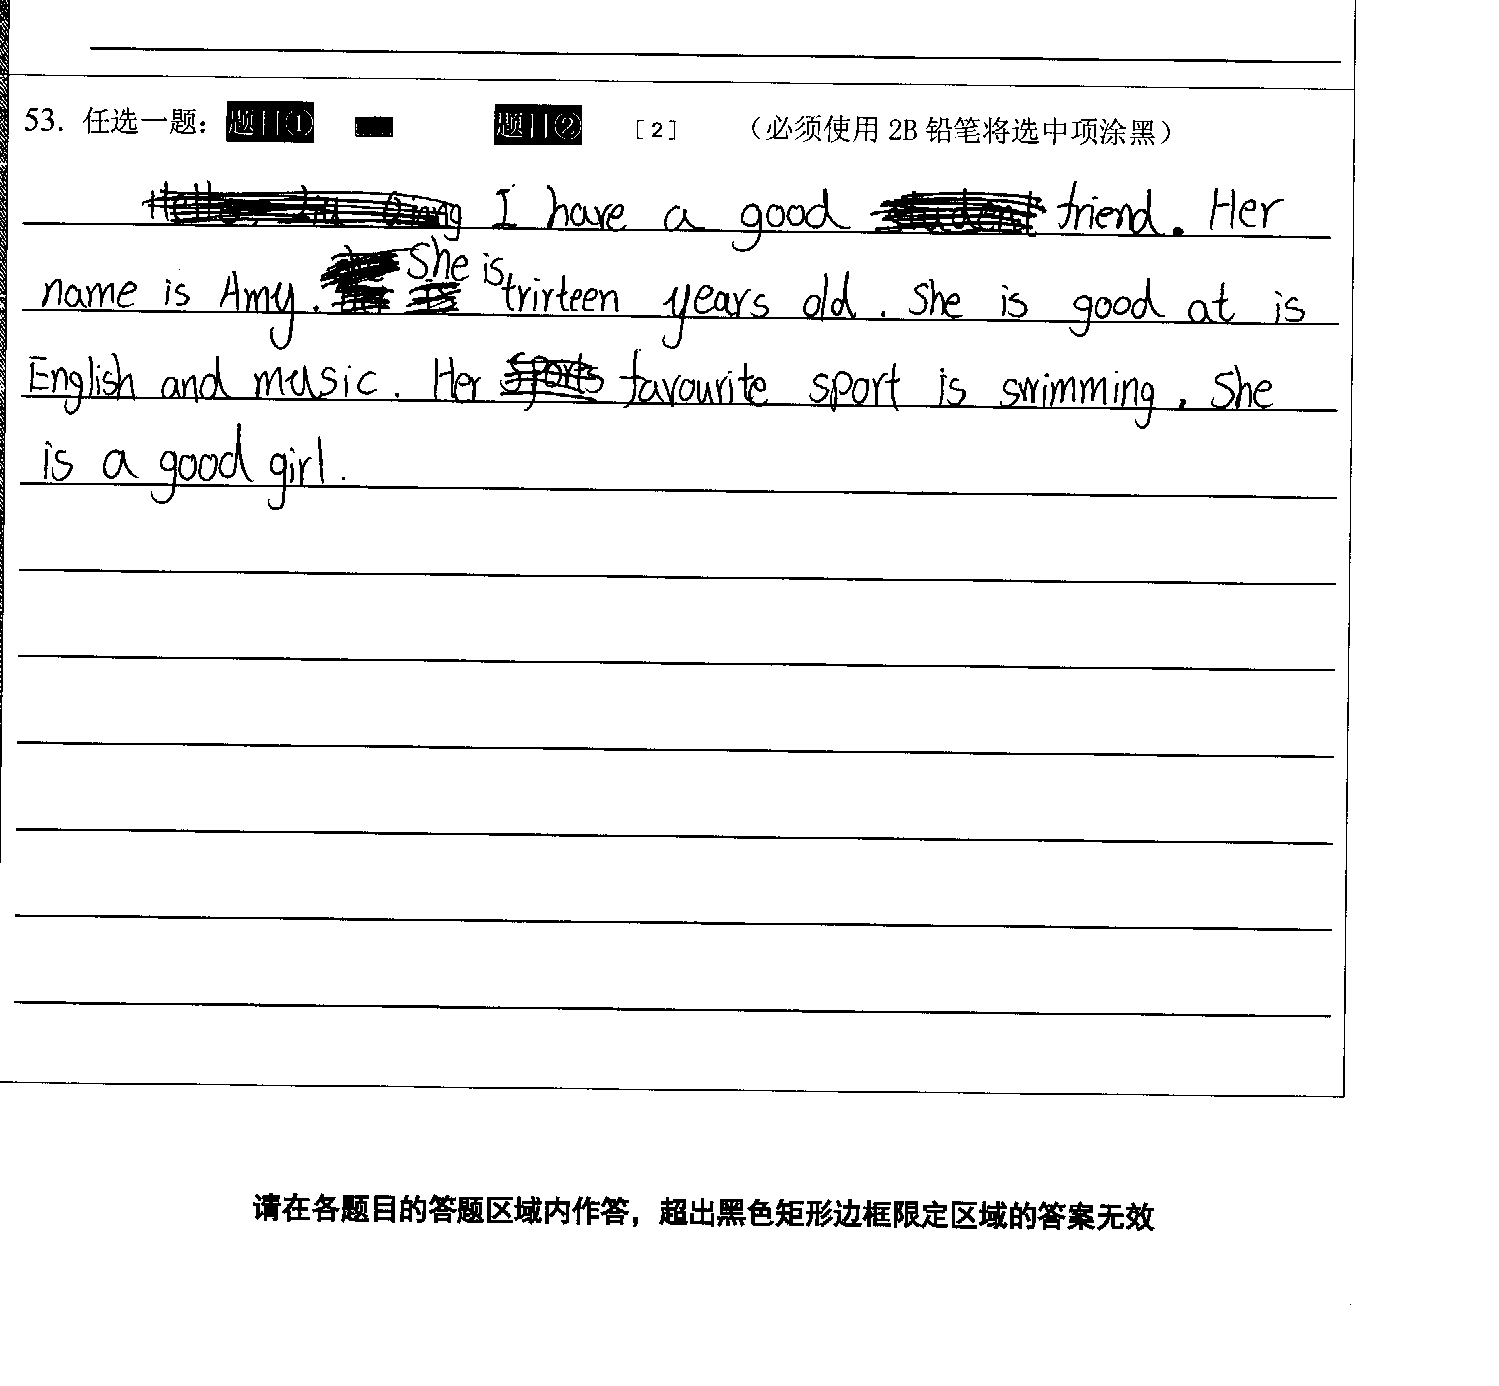 53. 任选一题： 题目① 题目② [2] （必须使用 2B 铅笔将选中项涂黑）
I have a good friend. Her
name is Amy. She is trirteen years old. She is good at is
English and music. Her favourite sport is swimming. She
is a good girl.
请在各题目的答题区域内作答，超出黑色矩形边框限定区域的答案无效